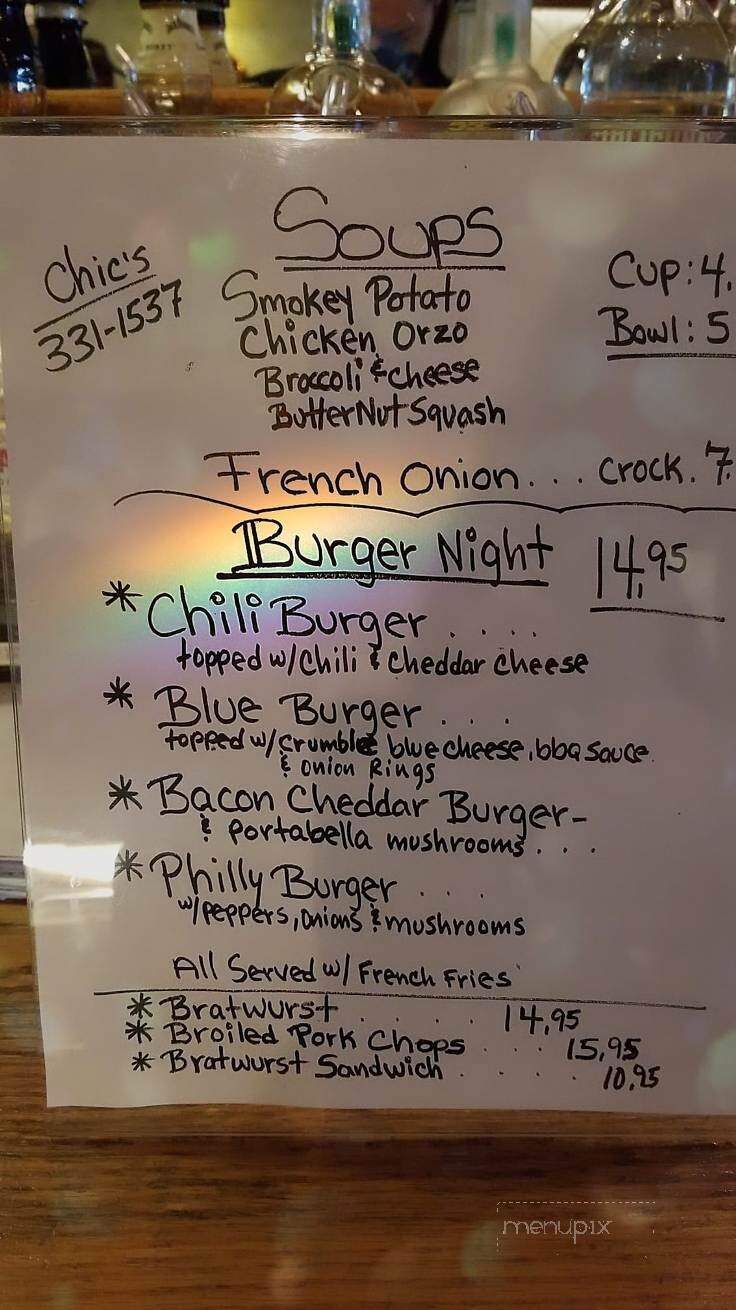 Soups
Chic's
331-1537
Smokey Potato
Chicken Orzo
Broccoli & Cheese
ButterNut Squash
Cup: 4.
Bowl: 5
French Onion... Crock. 7.
Burger Night 14.95
* Chili Burger . . . . .
topped w/Chili & Cheddar Cheese
* Blue Burger . . . .
topped w/crumble blue cheese, bbq sauce
& Onion Rings
* Bacon Cheddar Burger-
& Portabella mushrooms . . .
* Philly Burger . . .
w/peppers, Onions & mushrooms
All Served w/ French Fries
* Bratwurst . . . . . . 14.95
* Broiled Pork Chops . . . 15.95
* Bratwurst Sandwich . . . . . 10.95
menupix